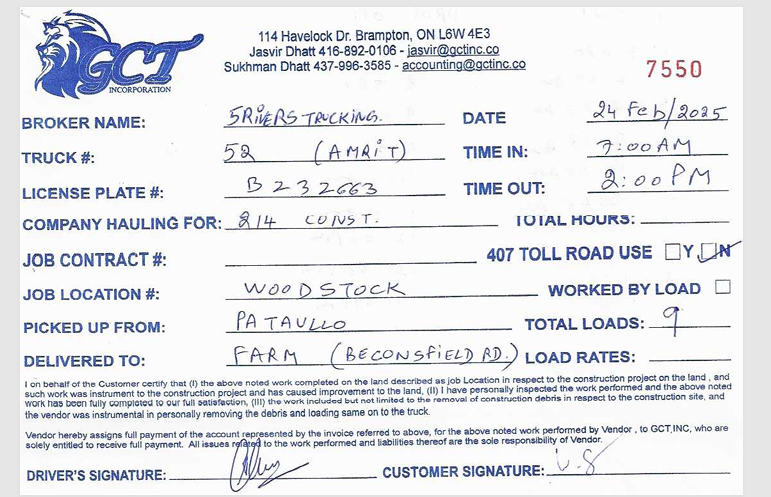 GCT
INCORPORATION
114 Havelock Dr. Brampton, ON L6W 4E3
Jasvir Dhatt 416-892-0106 - jasvir@gctinc.co
Sukhman Dhatt 437-996-3585 - accounting@gctinc.co
7550
BROKER NAME: 5RIVERS TRUCKING. DATE 24 Feb/2025
TRUCK #: 52 (AMRIT) TIME IN: 7:00 AM
LICENSE PLATE #: B232663 TIME OUT: 2:00 PM
COMPANY HAULING FOR: 214 CONST. TOTAL HOURS:
JOB CONTRACT #: 407 TOLL ROAD USE Y N
JOB LOCATION #: WOODSTOCK WORKED BY LOAD
PICKED UP FROM: PATAULLO TOTAL LOADS: 9
DELIVERED TO: FARM (BECONSFIELD RD.) LOAD RATES:
I on behalf of the Customer certify that (I) the above noted work completed on the land described as job Location in respect to the construction project on the land , and
such work was instrument to the construction project and has caused improvement to the land, (II) I have personally inspected the work performed and the above noted
work has been fully completed to our full satisfaction, (III) the work included but not limited to the removal of construction debris in respect to the construction site, and
the vendor was instrumental in personally removing the debris and loading same on to the truck.
Vendor hereby assigns full payment of the account represented by the invoice referred to above, for the above noted work performed by Vendor , to GCT,INC, who are
solely entitled to receive full payment. All issues related to the work performed and liabilities thereof are the sole responsibility of Vendor.
DRIVER'S SIGNATURE: CUSTOMER SIGNATURE: V.S